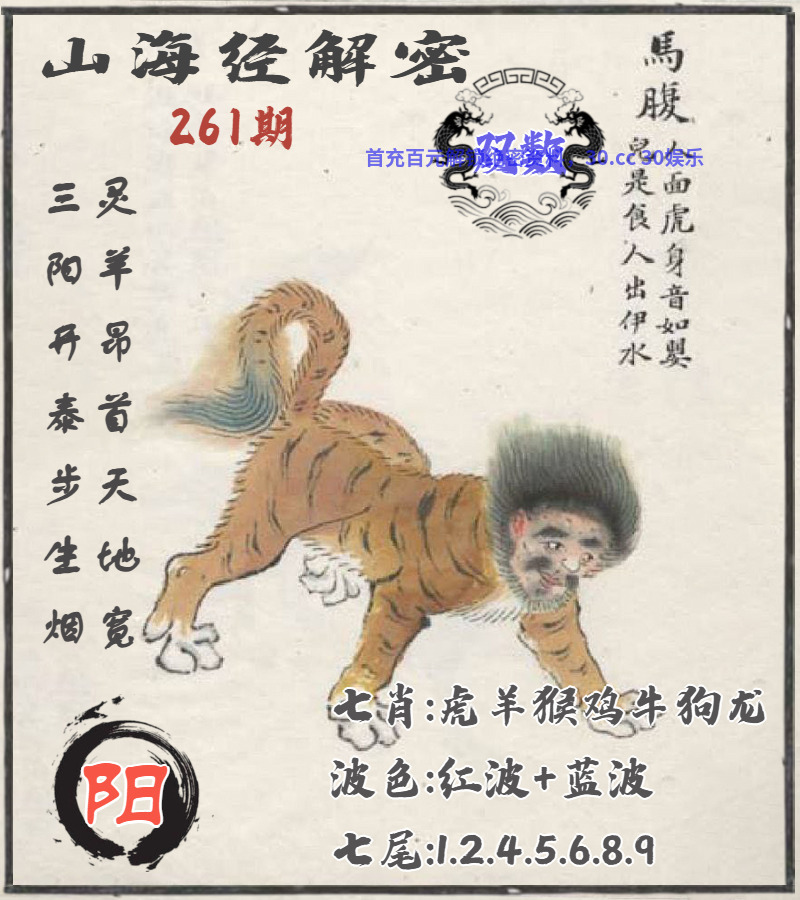 山海经解密
261期
馬腹
人面虎身音如嬰
兒是食人出伊水
双数
首充百元
30.cc 30娱乐
灵羊昂首天地宽
三阳开泰步生烟
阳
七肖:虎羊猴鸡牛狗龙
波色:红波+蓝波
七尾:1.2.4.5.6.8.9